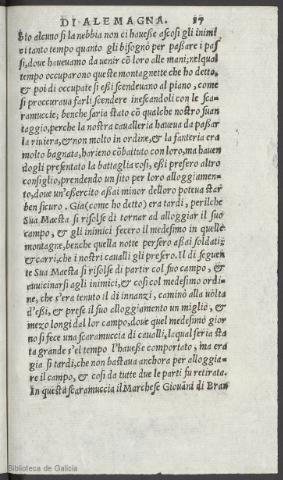 DI ALEMAGNA. 87
sto alcuno si la nebbia non ci hauesse ascosi gli inimi
ci tanto tempo quanto gli bisognò per passare i pas
si, doue haueuamo da uenir cō loro alle mani; nelqual
tempo occuparono queste montagnette che ho detto,
& poi di occupate si essi scendeuano al piano, come
si proccuraua farli scendere inescandoli con le sca-
ramuccie; benche saria stato cō qualche nostro suan
taggio, perche la nostra caualleria haueua da passar
la riuiera, & non molto in ordine, & la fanteria era
molto bagnata, hor ieno cōbattuto con loro, ma hauen
dogli presentato la battaglia cosi, essi presero altro
consiglio, prendendo un sito per loro alloggiamen-
to, doue un'essercito assai minor delloro poteua star
ben sicuro. Gia (come ho detto) era tardi, perilche
Sua Maesta si risolse di tornar ad alloggiar il suo
campo, & gli inimici fecero il medesimo in quelle
montagne, benche quella notte persero assai soldati,
& carri, che i nostri caualli gli presero. Il di seguen
te Sua Maesta si risolse di partir col suo campo, &
auuicinarsi agli inimici, & cosi col medesimo ordi-
ne, che s'era tenuto il di innanzi, caminò alla uolta
d'essi, & prese il suo alloggiamento un miglio, &
mezo longi dal lor campo, doue quel medesimo gior
no si fece una scaramuccia di caualli, la qual seria sta
ta grande s'el tempo l'hauesse comportato; ma era
gia si tardi, che non bastaua anchora per alloggia-
re il campo, & cosi da tutte due le parti fu retirata.
In questa scaramuccia il Marchese Giouāni di Bran
Biblioteca de Galicia